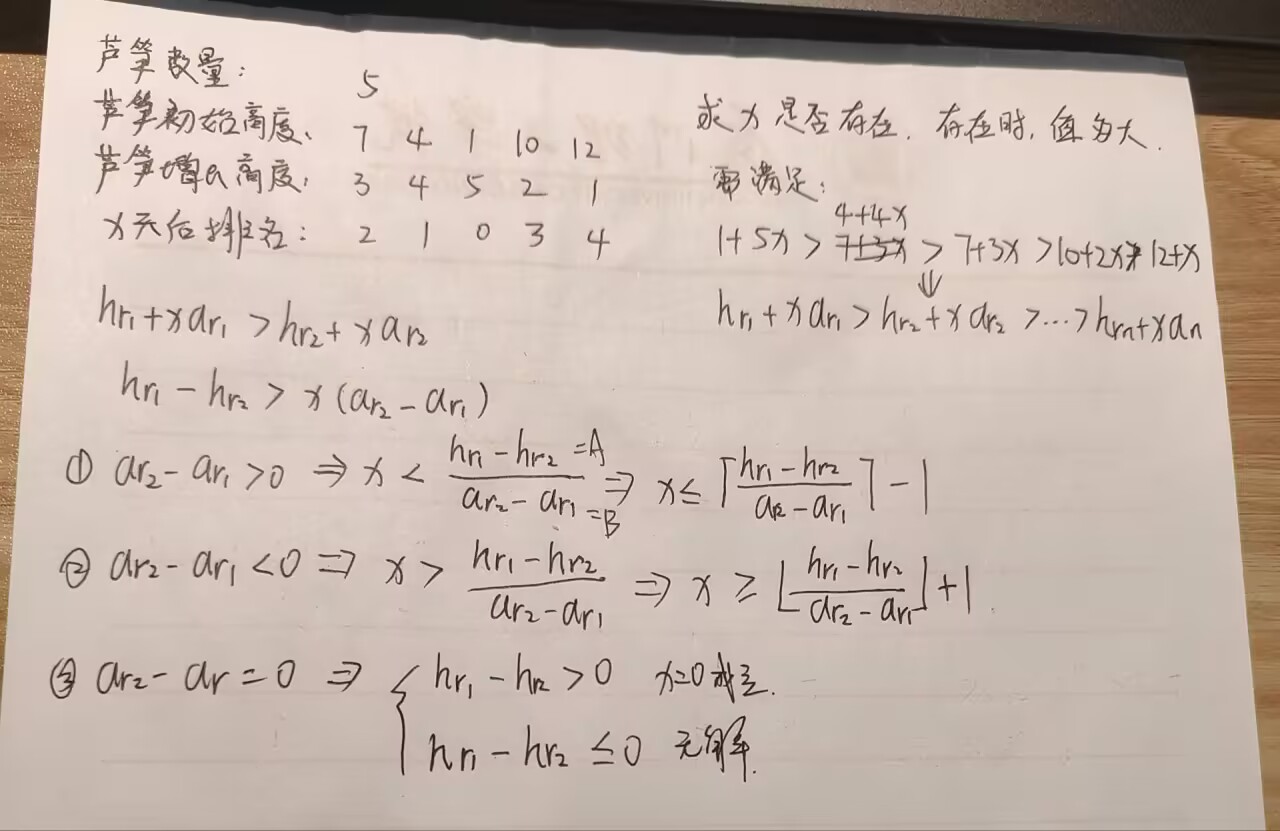 芦笋数量: 5
芦笋初始高度: 7 4 1 10 12
芦笋增长高度: 3 4 5 2 1
x天后排名: 2 1 0 3 4
求x是否存在. 存在时, 值多大.
需满足:
4+4x
1+5x > 7+3x > 7+3x > 10+2x > 12+x
⇓
hr₁+xar₁ > hr₂+xar₂ > ... > hrn+xan
hr₁+xar₁ > hr₂+xar₂
hr₁-hr₂ > x(ar₂-ar₁)
① ar₂-ar₁>0 ⇒ x < (hr₁-hr₂ =A)/(ar₂-ar₁ =B) ⇒ x ≤ ⌈(hr₁-hr₂)/(ar₂-ar₁)⌉-1
② ar₂-ar₁<0 ⇒ x > (hr₁-hr₂)/(ar₂-ar₁) ⇒ x ≥ ⌊(hr₁-hr₂)/(ar₂-ar₁)⌋+1
③ ar₂-ar=0 ⇒ { hr₁-hr₂>0 x=0成立.
hr₁-hr₂≤0 无解.